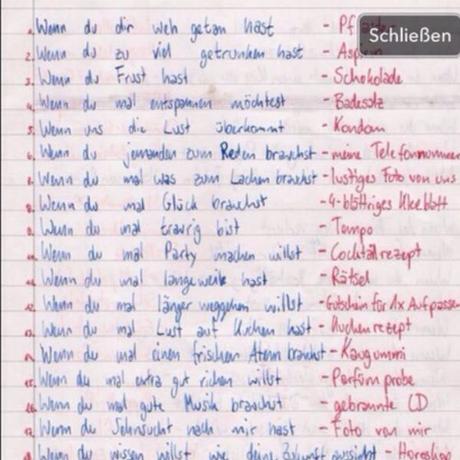 Schließen
1. Wenn du dir weh getan hast - Pf
2. Wenn du zu viel getrunken hast - Aspirin
3. Wenn du Frust hast - Schokolade
4. Wenn du mal entspannen möchtest - Badesalz
5. Wenn uns die Lust überkommt - Kondom
6. Wenn du jemanden zum Reden brauchst - meine Telefonnummer
7. Wenn du mal was zum Lachen brauchst - lustiges Foto von uns
8. Wenn du mal Glück brauchst - 4-blättriges Kleeblatt
9. Wenn du mal traurig bist - Tempo
10. Wenn du mal Party machen willst - Cocktailrezept
11. Wenn du mal langeweile hast - Rätsel
12. Wenn du mal länger weggehen willst - Gutschein für 1x Aufpassen
13. Wenn du mal Lust auf Kuchen hast - Kuchenrezept
14. Wenn du mal einen frischen Atem brauchst - Kaugummi
15. Wenn du mal extra gut richen willst - Parfüm probe
16. Wenn du mal gute Musik brauchst - gebrannte CD
17. Wenn du Sehnsucht nach mir hast - Foto von mir
Wenn du wissen willst wie deine Zukunft aussieht - Horoskop